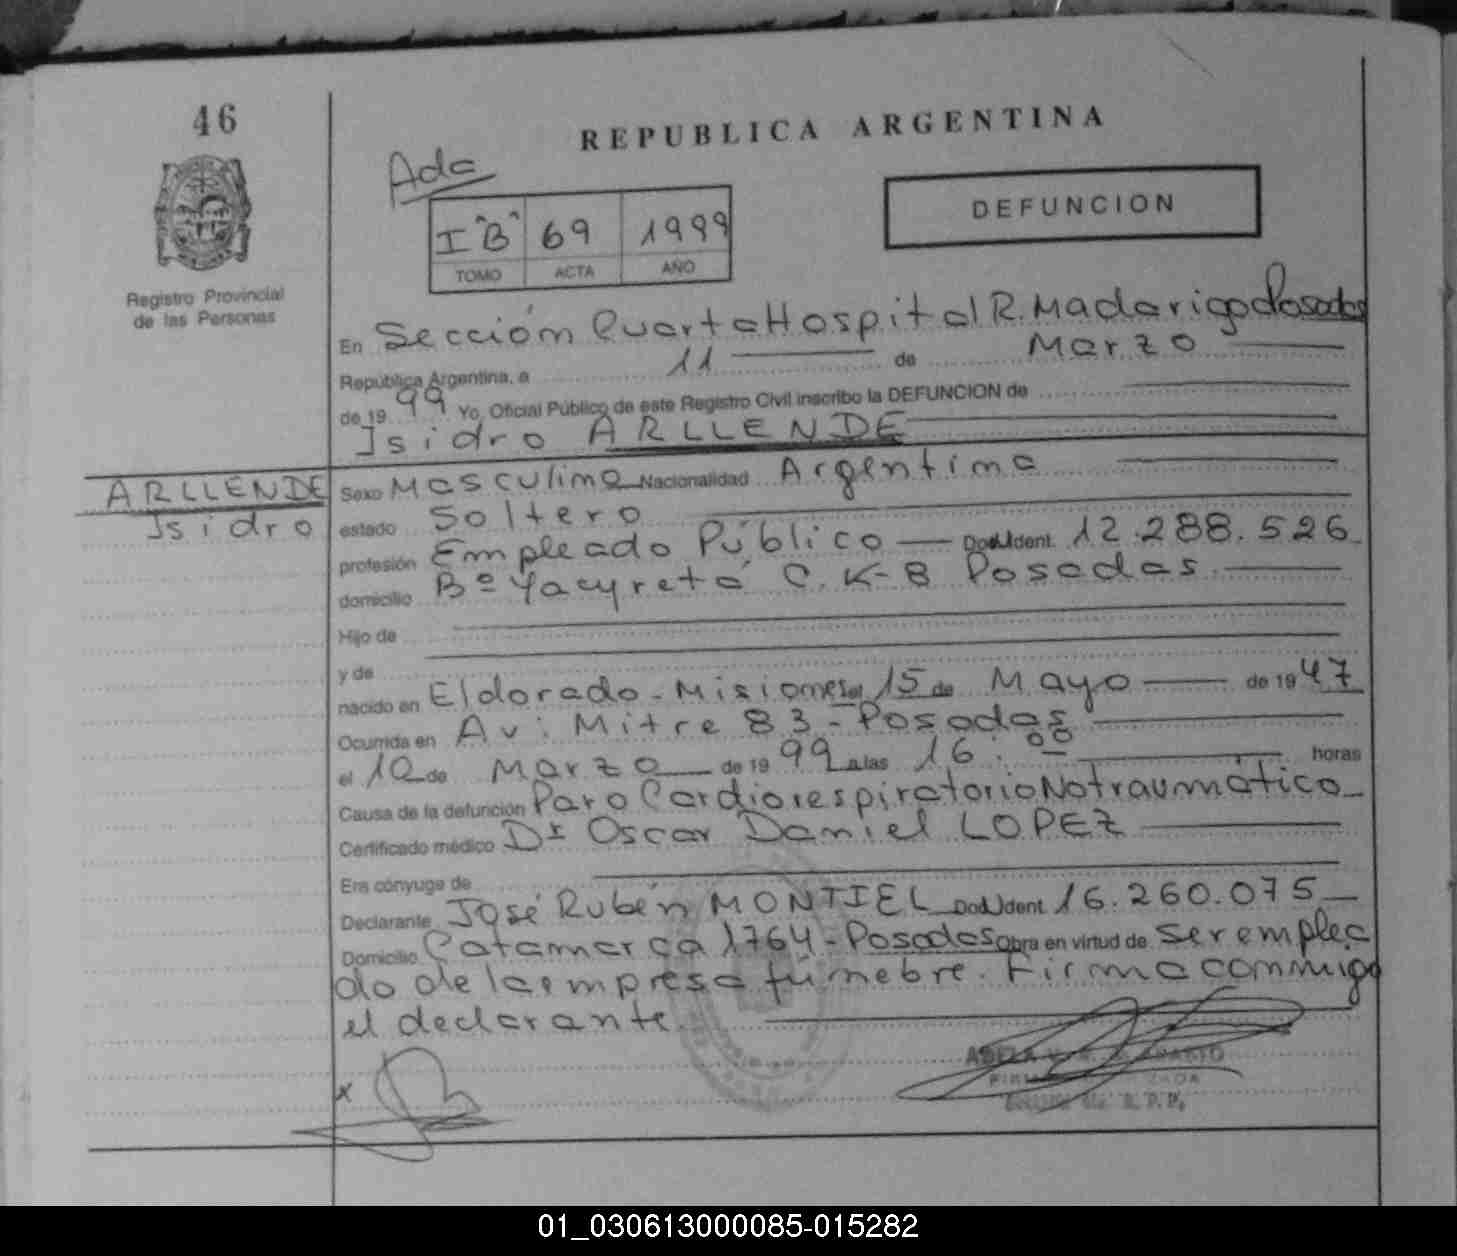 46
REPUBLICA ARGENTINA
Ada
I "B" 69 1999
TOMO ACTA AÑO
DEFUNCION
Registro Provincial
de las Personas
En Sección Cuarta Hospital R. Madariga Posadas
República Argentina, a 11 de Marzo
de 19 99 Yo, Oficial Público de este Registro Civil inscribo la DEFUNCION de
Isidro ARLLENDE
ARLLENDE
Isidro
Sexo Masculino Nacionalidad Argentina
estado Soltero
profesión Empleado Público Doc. Ident. 12.288.526
domicilio Bº Yacyretá C. K-8 Posadas
Hijo de
y de
nacido en Eldorado - Misiones el 15 de Mayo de 19 47
Ocurrida en Av: Mitre 83 - Posadas
el 10 de Marzo de 19 99 a las 16:00 horas
Causa de la defunción Paro Cardiorespiratorio No traumático
Certificado médico Dr Oscar Daniel LOPEZ
Era cónyuge de
Declarante José Rubén MONTIEL Doc. Ident. 16.260.075
Domicilio Catamarca 1764 - Posadas Obra en virtud de ser emplea
do de la empresa fúnebre. Firma conmigo
el declarante
x
ADELA
R. P. P.
01_030613000085-015282